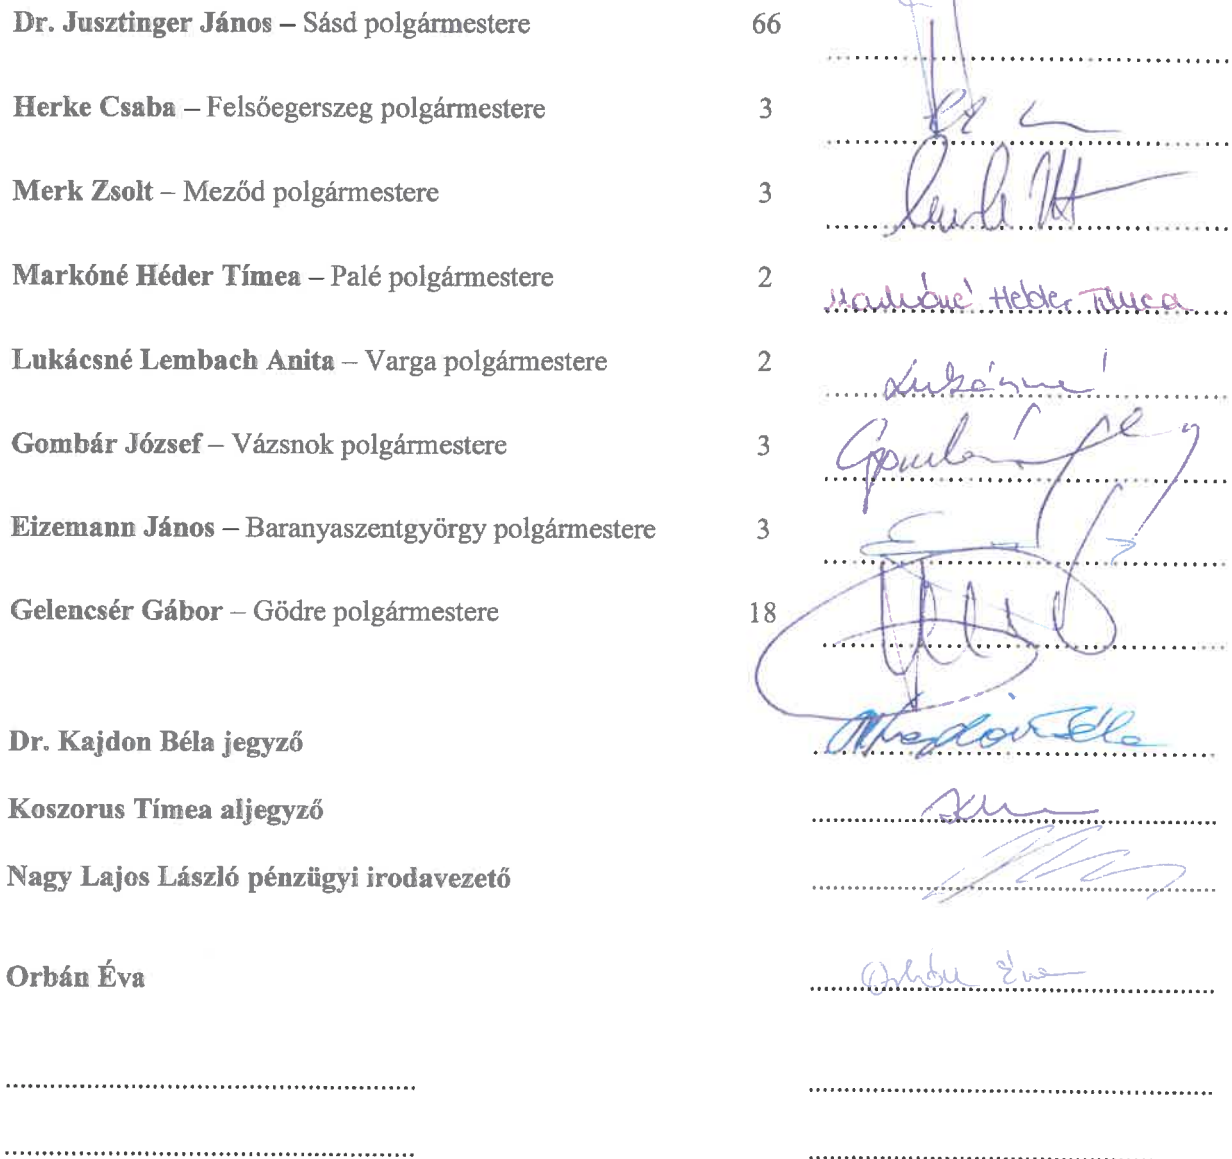 Dr. Jusztinger János – Sásd polgármestere 66
Herke Csaba – Felsőegerszeg polgármestere 3
Merk Zsolt – Meződ polgármestere 3
Markóné Héder Tímea – Palé polgármestere 2 Markóné Héder Tímea
Lukácsné Lembach Anita – Varga polgármestere 2 Lukácsné
Gombár József – Vázsnok polgármestere 3
Eizemann János – Baranyaszentgyörgy polgármestere 3
Gelencsér Gábor – Gödre polgármestere 18
Dr. Kajdon Béla jegyző
Koszorus Tímea aljegyző
Nagy Lajos László pénzügyi irodavezető
Orbán Éva Orbán Éva